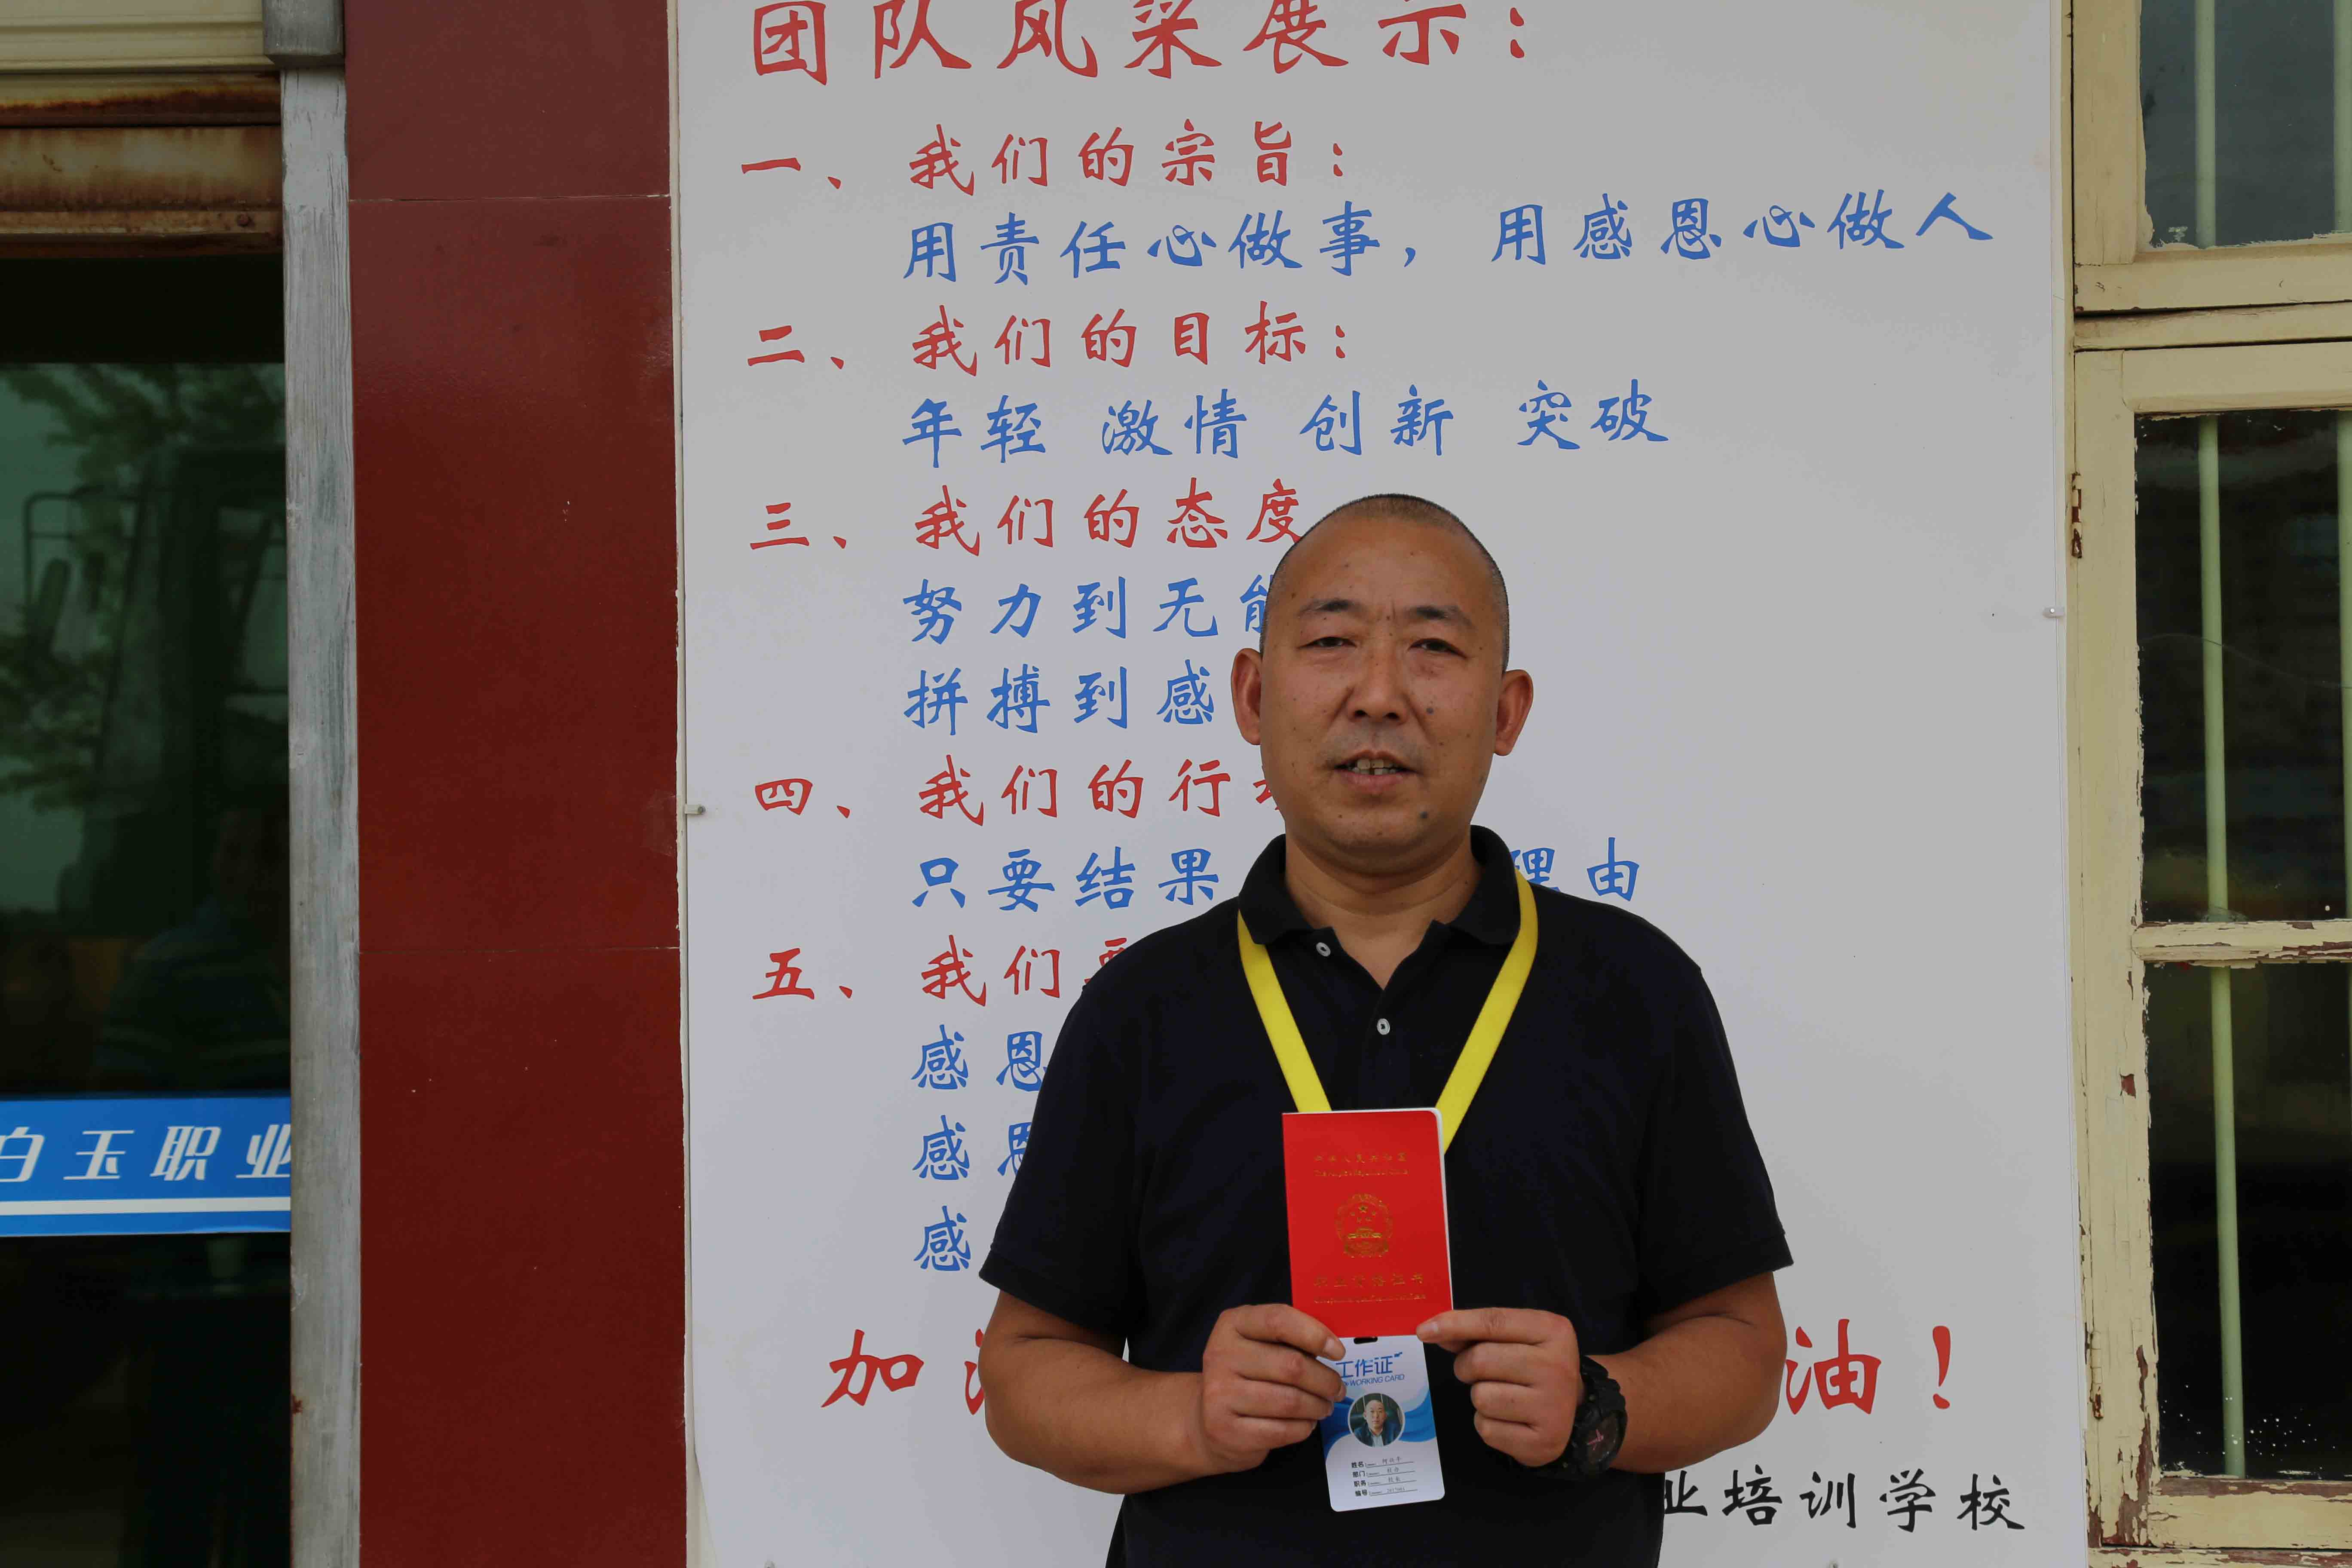 团队风采展示：
一、我们的宗旨：
用责任心做事，用感恩心做人
二、我们的目标：
年轻 激情 创新 突破
三、我们的态度
努力到无能
拼搏到感
四、我们的行
只要结果 理由
五、我们要
感恩
感恩
感
加油 油！
业培训学校
白玉职业
中华人民共和国
职业资格证书
工作证
WORKING CARD
姓名
部门
职务
编号